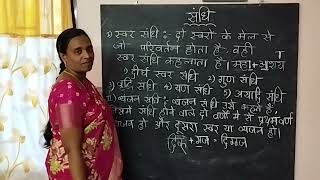 संधि
१) स्वर संधि :- दो स्वरों के मेल से
जो परिवर्तन होता है वही
स्वर संधि कहलाता है। महा+आशय
१) दीर्घ स्वर संधि २) गुण संधि
३) वृद्धि संधि ४) यण संधि ५) अयादि संधि
२) व्यंजन संधि :- व्यंजन संधि उसे कहते है,
जिसमें संधि होने वाले दो वर्णों में से प्रथम वर्ण
व्यंजन हो और दूसरा स्वर या व्यंजन हो।
दिक् + गज = दिग्गज